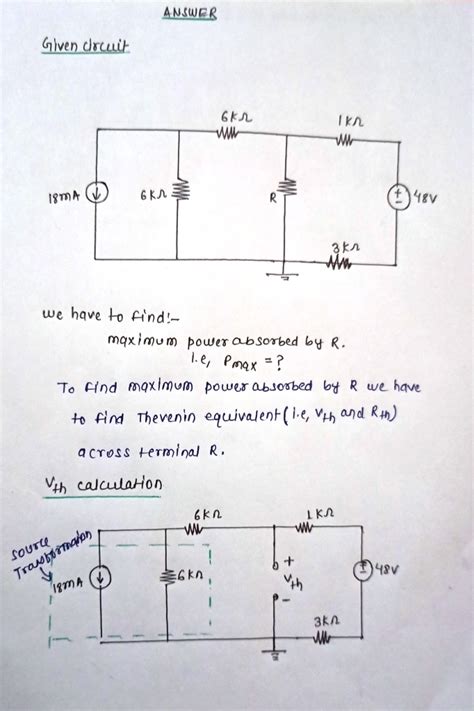 ANSWER
Given circuit
6KΩ
1KΩ
18mA
6KΩ
R
+
-
48V
3KΩ
we have to find:-
maximum power absorbed by R.
i.e, Pmax = ?
To find maximum power absorbed by R we have
to find Thevenin equivalent (i.e, Vth and Rth)
across terminal R.
Vth calculation
6KΩ
1KΩ
source
Transformation
18mA
6KΩ
+
Vth
-
48V
3KΩ